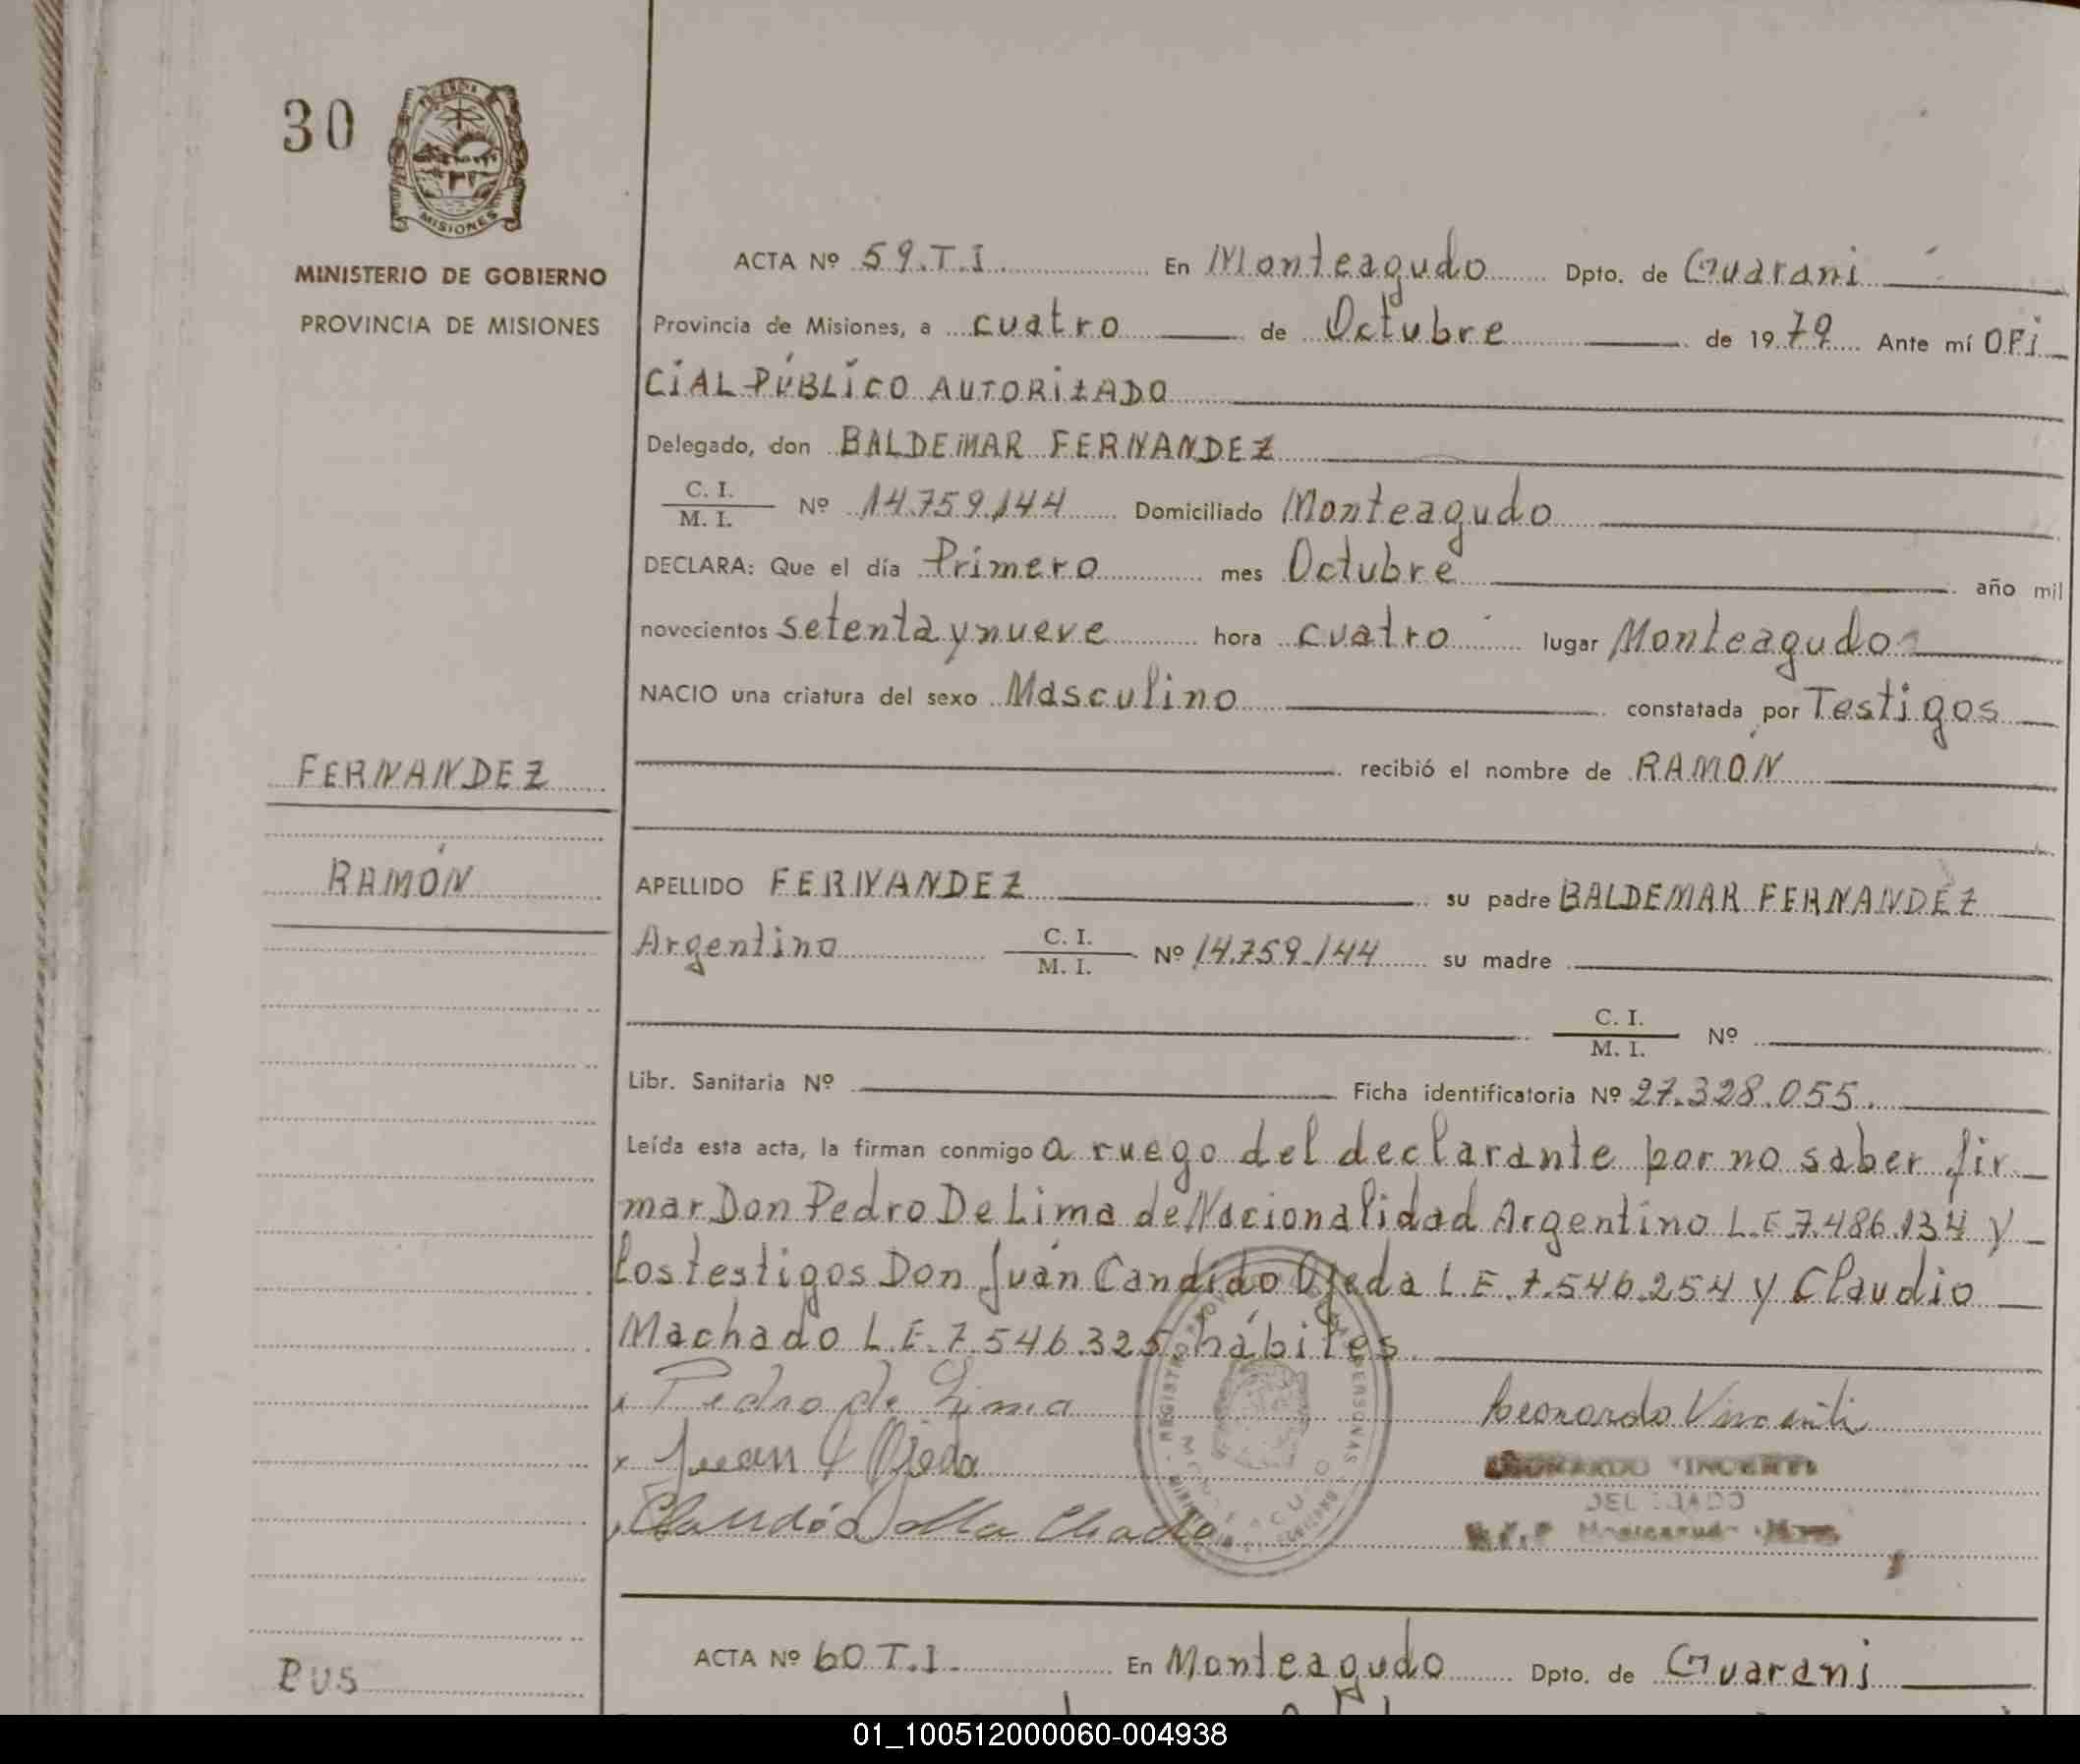 30
MISIONES
MINISTERIO DE GOBIERNO
PROVINCIA DE MISIONES
ACTA Nº 59.T.I. En Monteagudo Dpto. de Guaraní
Provincia de Misiones, a cuatro de Octubre de 1979 Ante mí OFI
CIAL PÚBLICO AUTORIZADO
Delegado, don BALDEMAR FERNANDEZ
C. I.
M. I. Nº 14.759.144 Domiciliado Monteagudo
DECLARA: Que el día Primero mes Octubre año mil
novecientos setenta y nueve hora cuatro lugar Monteagudo
NACIO una criatura del sexo Masculino constatada por Testigos
recibió el nombre de RAMÓN
FERNANDEZ
RAMÓN
APELLIDO FERNANDEZ su padre BALDEMAR FERNANDEZ
Argentino C. I.
M. I. Nº 14.759.144 su madre
C. I.
M. I. Nº
Libr. Sanitaria Nº Ficha identificatoria Nº 27.328.055.
Leída esta acta, la firman conmigo a ruego del declarante por no saber fir
mar Don Pedro De Lima de Nacionalidad Argentino L.E 7.486.134 y
los testigos Don Juán Candido Ojeda L.E. 7.546.254 y Claudio
Machado L.E. 7.546.325 hábiles.
x Pedro de Lima
Leonardo Vincenti
x Juan C Ojeda
LEONARDO VINCENTI
DELEGADO
Claudio Ma Chado
ACTA Nº 60 T.I. En Monteagudo Dpto. de Guarani
PUS
01_100512000060-004938